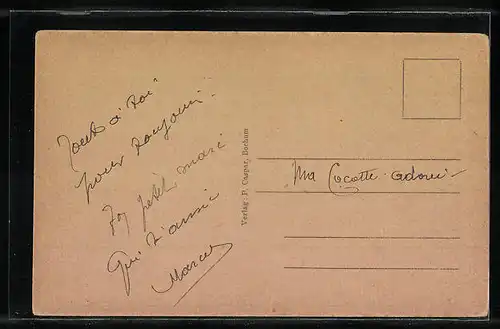 Tout à toi
pour toujours
Ton petit mari
Qui t'aime
Marcel
Verlag: P. Caspar, Bochum
Ma Cocotte adorée